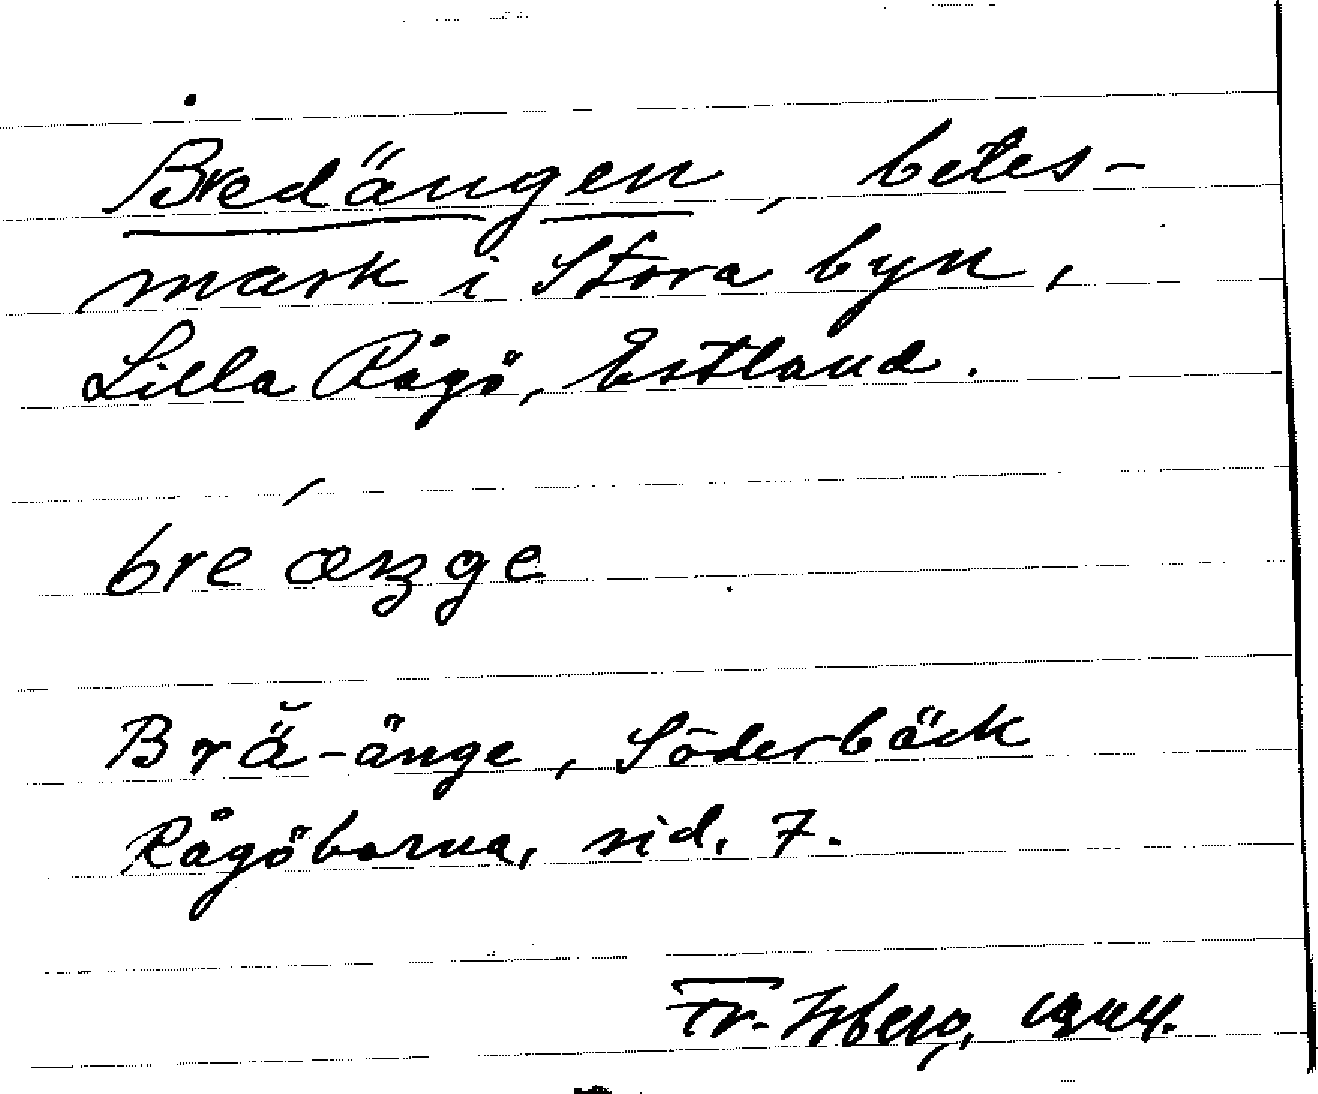 Bredängen, betes-
mark i Stora byn,
Lilla Rågö, Estland.
bre ænge
Brä-änge, Söderbäck
Rågöborna, sid. 7.
Fr.